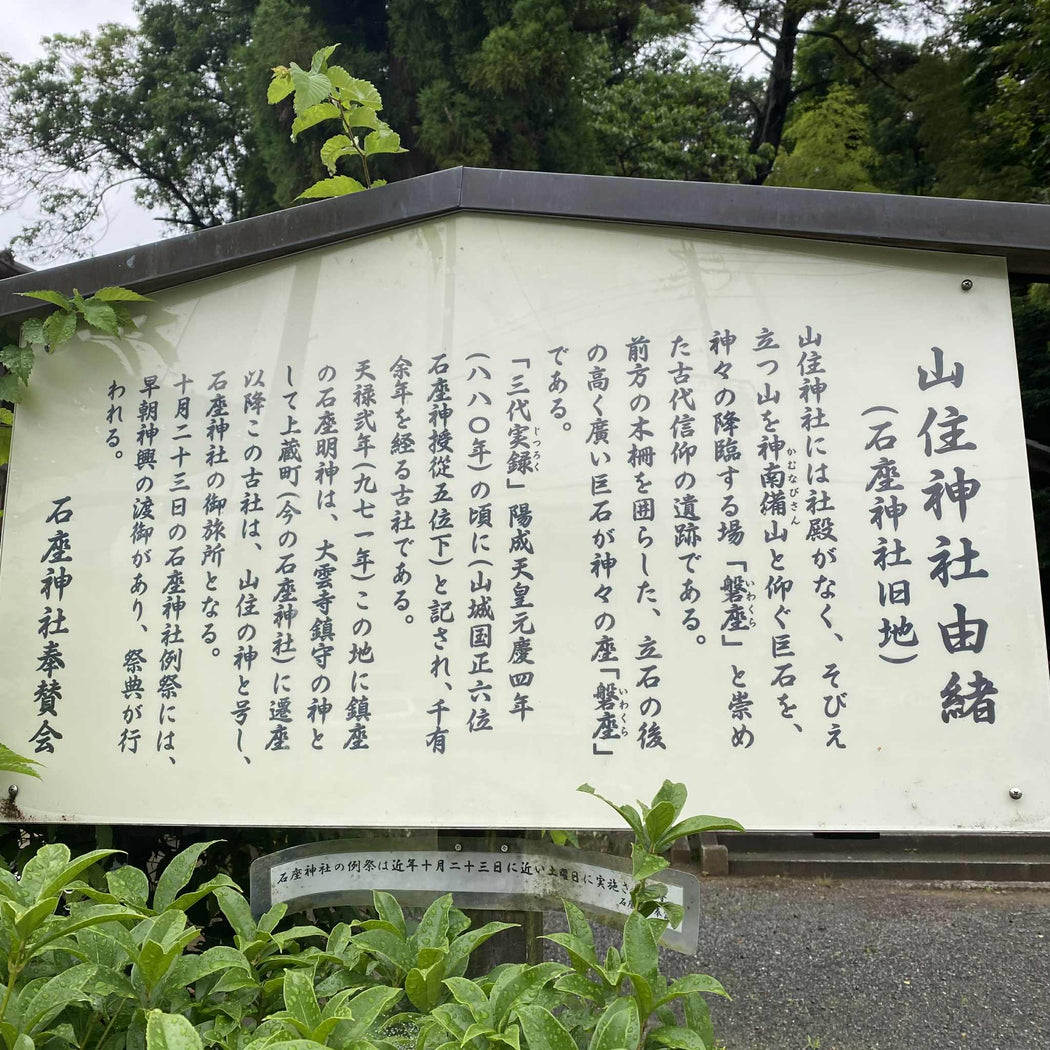 山住神社由緒
(石座神社旧地)
山住神社には社殿がなく、そびえ
立つ山を神南備山と仰ぐ巨石を、
かむなびさん
神々の降臨する場「磐座」と崇め
いわくら
た古代信仰の遺跡である。
前方の木柵を囲らした、立石の後
の高く廣い巨石が神々の座「磐座」
いわくら
である。
「三代実録」陽成天皇元慶四年
じつろく
(八八〇年)の頃に(山城国正六位
石座神授從五位下)と記され、千有
余年を経る古社である。
天禄弐年(九七一年)この地に鎮座
の石座明神は、大雲寺鎮守の神と
して上蔵町(今の石座神社)に遷座
以降この古社は、山住の神と号し、
石座神社の御旅所となる。
十月二十三日の石座神社例祭には、
早朝神輿の渡御があり、祭典が行
われる。
石座神社奉賛会
石座神社の例祭は近年十月二十三日に近い土曜日に実施さ